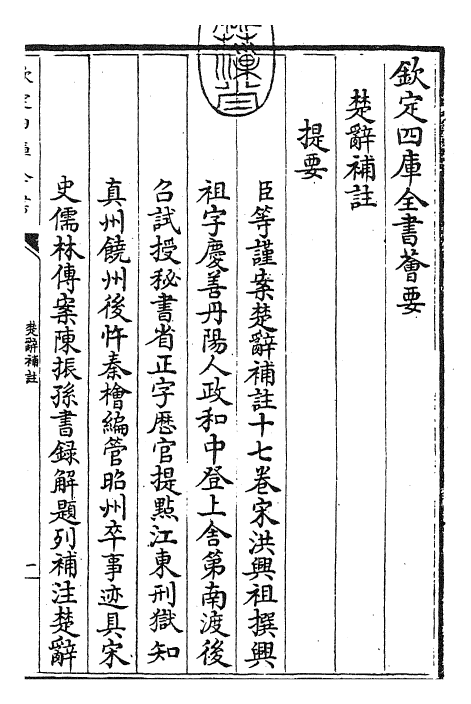 欽定四庫全書薈要
楚辭補註
提要
臣等謹案楚辭補註十七卷宋洪興祖撰興
祖字慶善丹陽人政和中登上舍第南渡後
召試授秘書省正字歷官提點江東刑獄知
真州饒州後忤秦檜編管昭州卒事迹具宋
史儒林傳案陳振孫書録解題列補注楚辭
楚辭補註